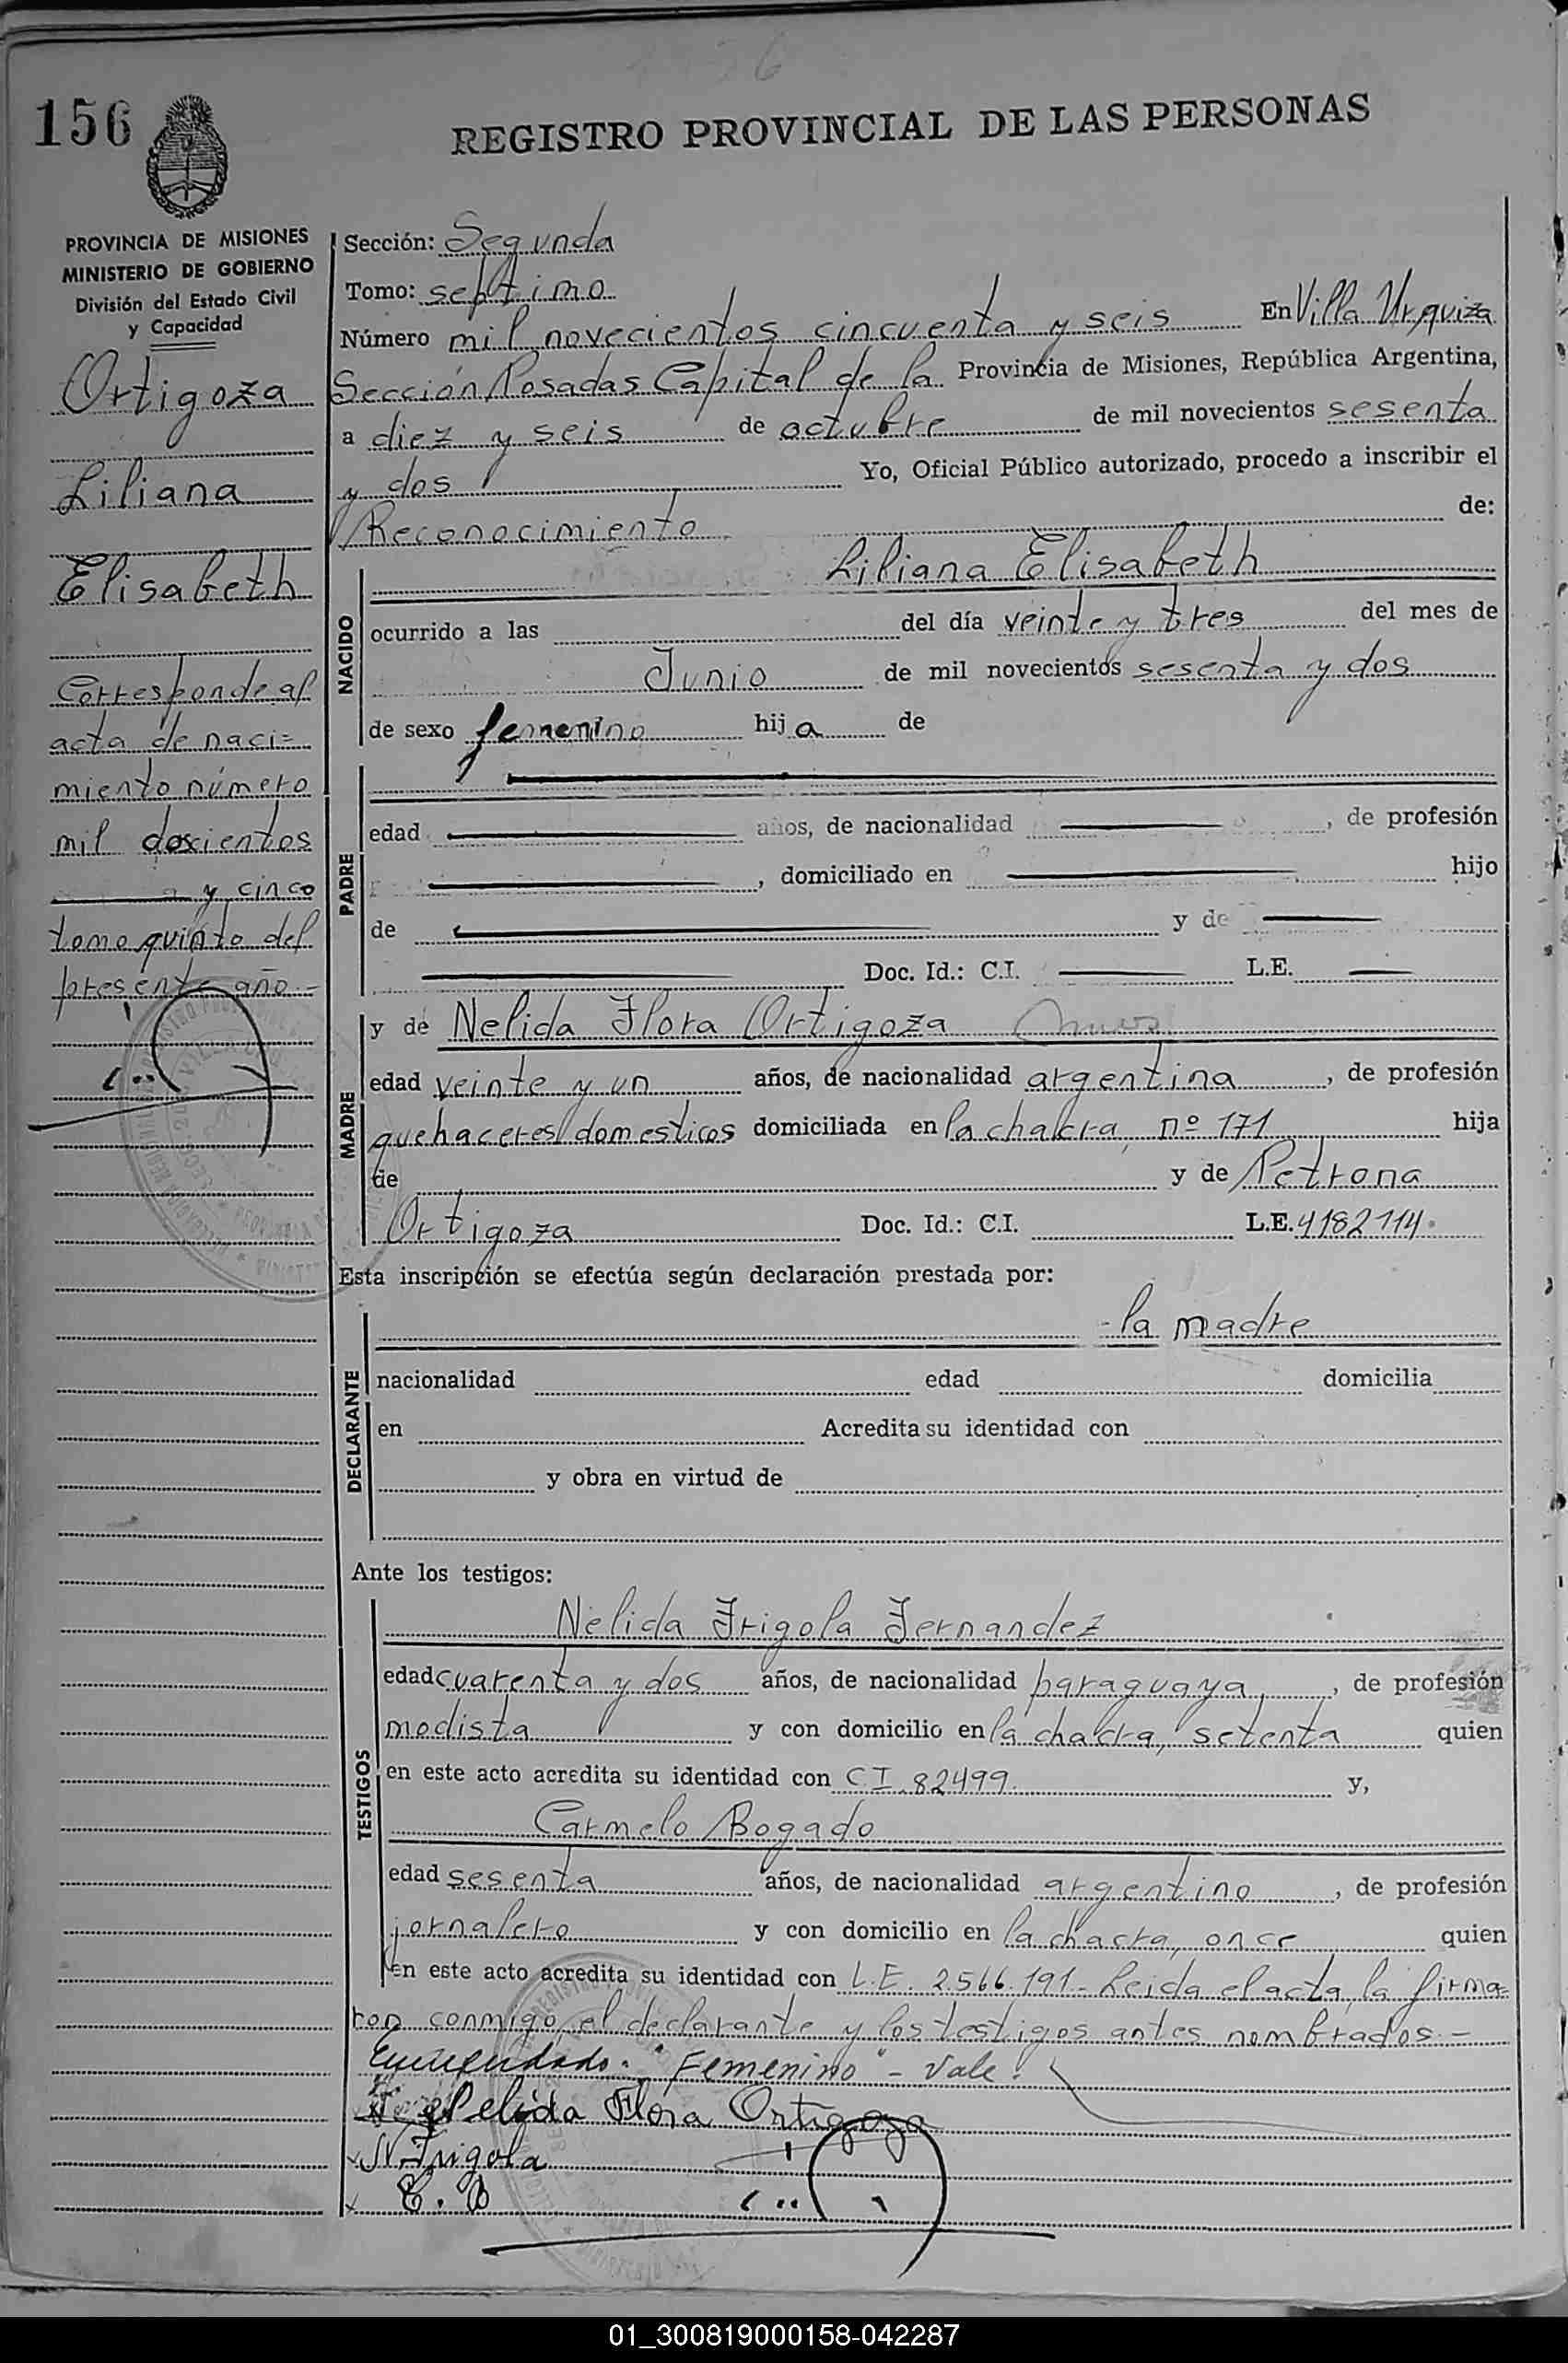 156
REGISTRO PROVINCIAL DE LAS PERSONAS
PROVINCIA DE MISIONES
MINISTERIO DE GOBIERNO
División del Estado Civil
y Capacidad
Ortigoza
Liliana
Elisabeth
Corresponde al
acta de naci=
miento número
mil doscientos
y cinco
tomo quinto del
presente año.-
Sección: Segunda
Tomo: septimo
Número mil novecientos cincuenta y seis En Villa Urquiza
Sección Posadas Capital de la Provincia de Misiones, República Argentina,
a diez y seis de octubre de mil novecientos sesenta
y dos Yo, Oficial Público autorizado, procedo a inscribir el
Reconocimiento de:
Liliana Elisabeth
NACIDO
ocurrido a las del día veinte y tres del mes de
Junio de mil novecientos sesenta y dos
de sexo femenino hija de
PADRE
edad años, de nacionalidad , de profesión
, domiciliado en hijo
de y de
Doc. Id.: C.I. L.E.
MADRE
y de Nelida Flora Ortigoza
edad veinte y un años, de nacionalidad argentina , de profesión
quehaceres domesticos domiciliada en la chakra nº 171 hija
de y de Petrona
Ortigoza Doc. Id.: C.I. L.E. 4182114.
Esta inscripción se efectúa según declaración prestada por:
- la madre
DECLARANTE
nacionalidad edad domicilia
en Acredita su identidad con
y obra en virtud de
Ante los testigos:
TESTIGOS
Nelida Frigola Fernandez
edad cuarenta y dos años, de nacionalidad paraguaya , de profesión
modista y con domicilio en la chacra, setenta quien
en este acto acredita su identidad con C I. 82499. y,
Carmelo Bogado
edad sesenta años, de nacionalidad argentino , de profesión
jornalero y con domicilio en la chacra, once quien
en este acto acredita su identidad con L.E. 2.566.191.- Leida el acta, la firma=
ron conmigo, el declarante y los testigos antes nombrados.-
Enmendado. "Femenino" - Vale.
Nelida Flora Ortigoza
x N. Frigola
x C. B
01_300819000158-042287